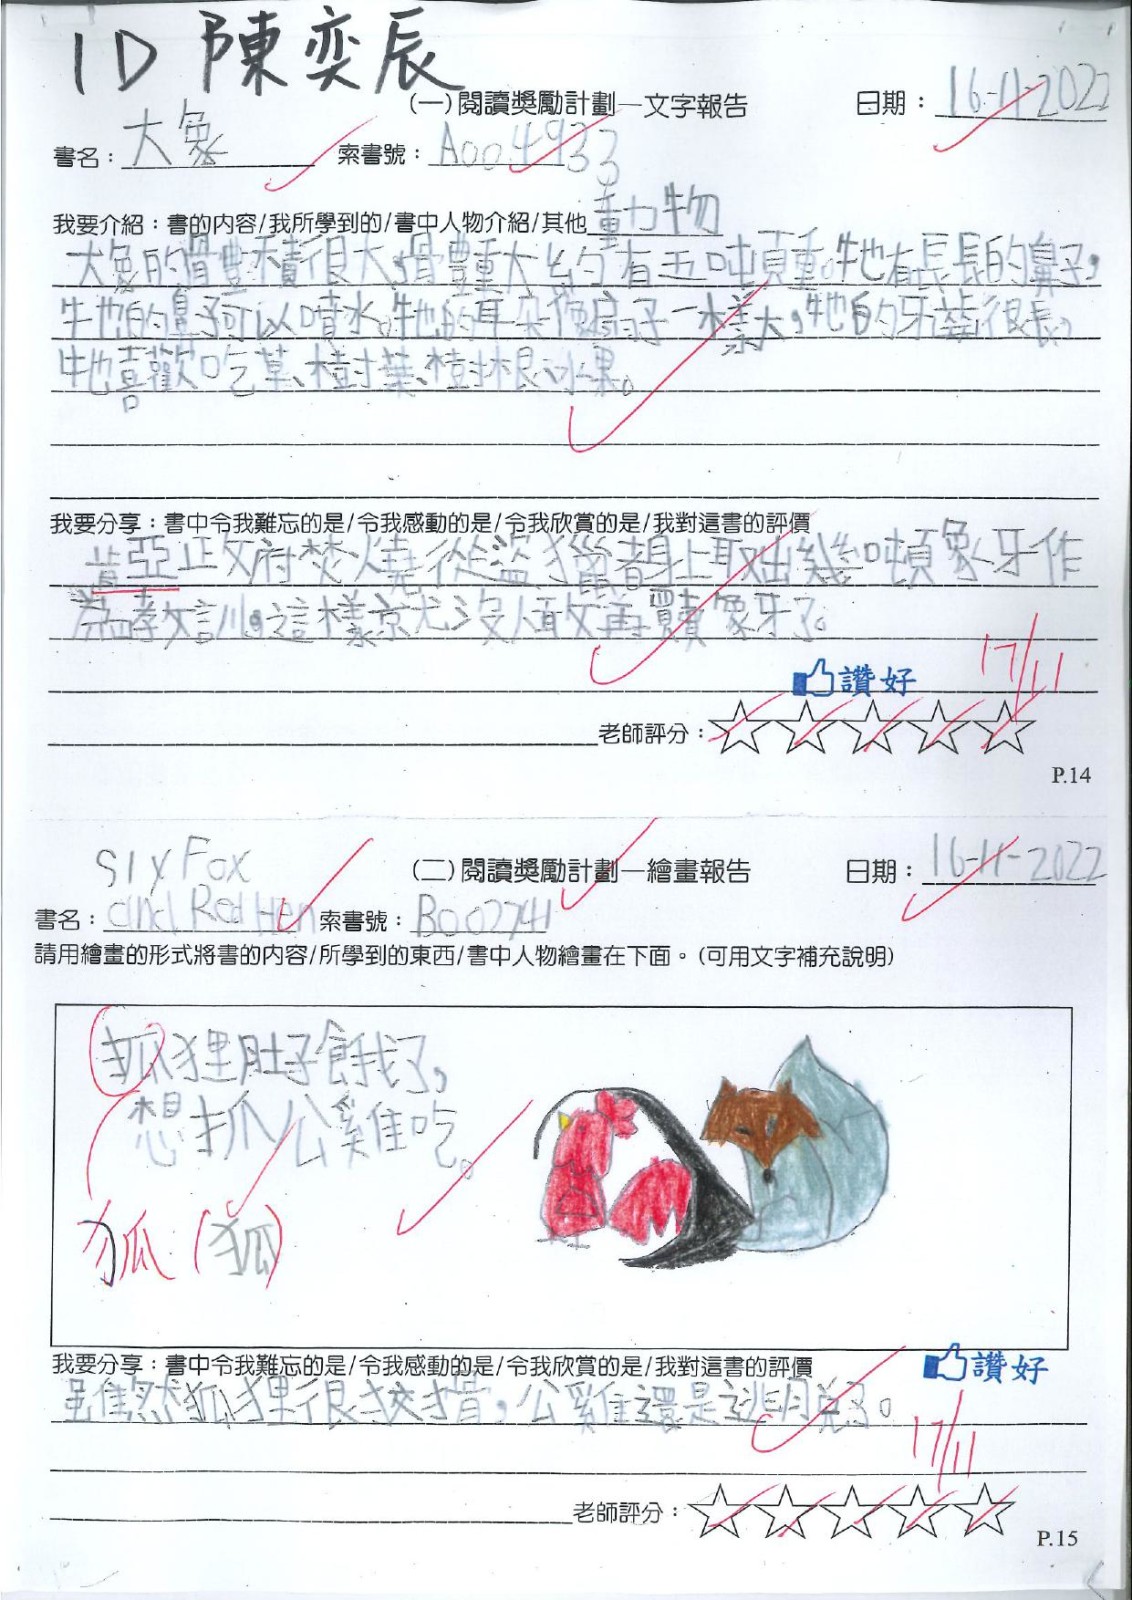 1D 陳奕辰
(一)閱讀獎勵計劃—文字報告 日期：16-11-2022
書名：大象 索書號：A004933
我要介紹：書的內容/我所學到的/書中人物介紹/其他動物
大象的體積很大，體重大約有五噸重。牠有長長的鼻子，
牠的鼻子可以噴水。牠的耳朵像扇子一樣大，牠的牙齒很長。
牠喜歡吃草、樹葉、樹根、水果。
我要分享：書中令我難忘的是/令我感動的是/令我欣賞的是/我對這書的評價
肯亞政府焚燒從盜獵者身上取出幾噸象牙作
為教訓。這樣就沒人敢再賣象牙了。
讚好 17/11
老師評分：
P.14
Sly Fox
(二)閱讀獎勵計劃—繪畫報告 日期：16-11-2022
書名：and Red Hen 索書號：B002741
請用繪畫的形式將書的內容/所學到的東西/書中人物繪畫在下面。(可用文字補充說明)
狐狸肚子餓了，
想抓公雞吃。
狐(狐)
我要分享：書中令我難忘的是/令我感動的是/令我欣賞的是/我對這書的評價
讚好
雖然狐狸很狡猾，公雞還是逃脫了。
17/11
老師評分：
P.15